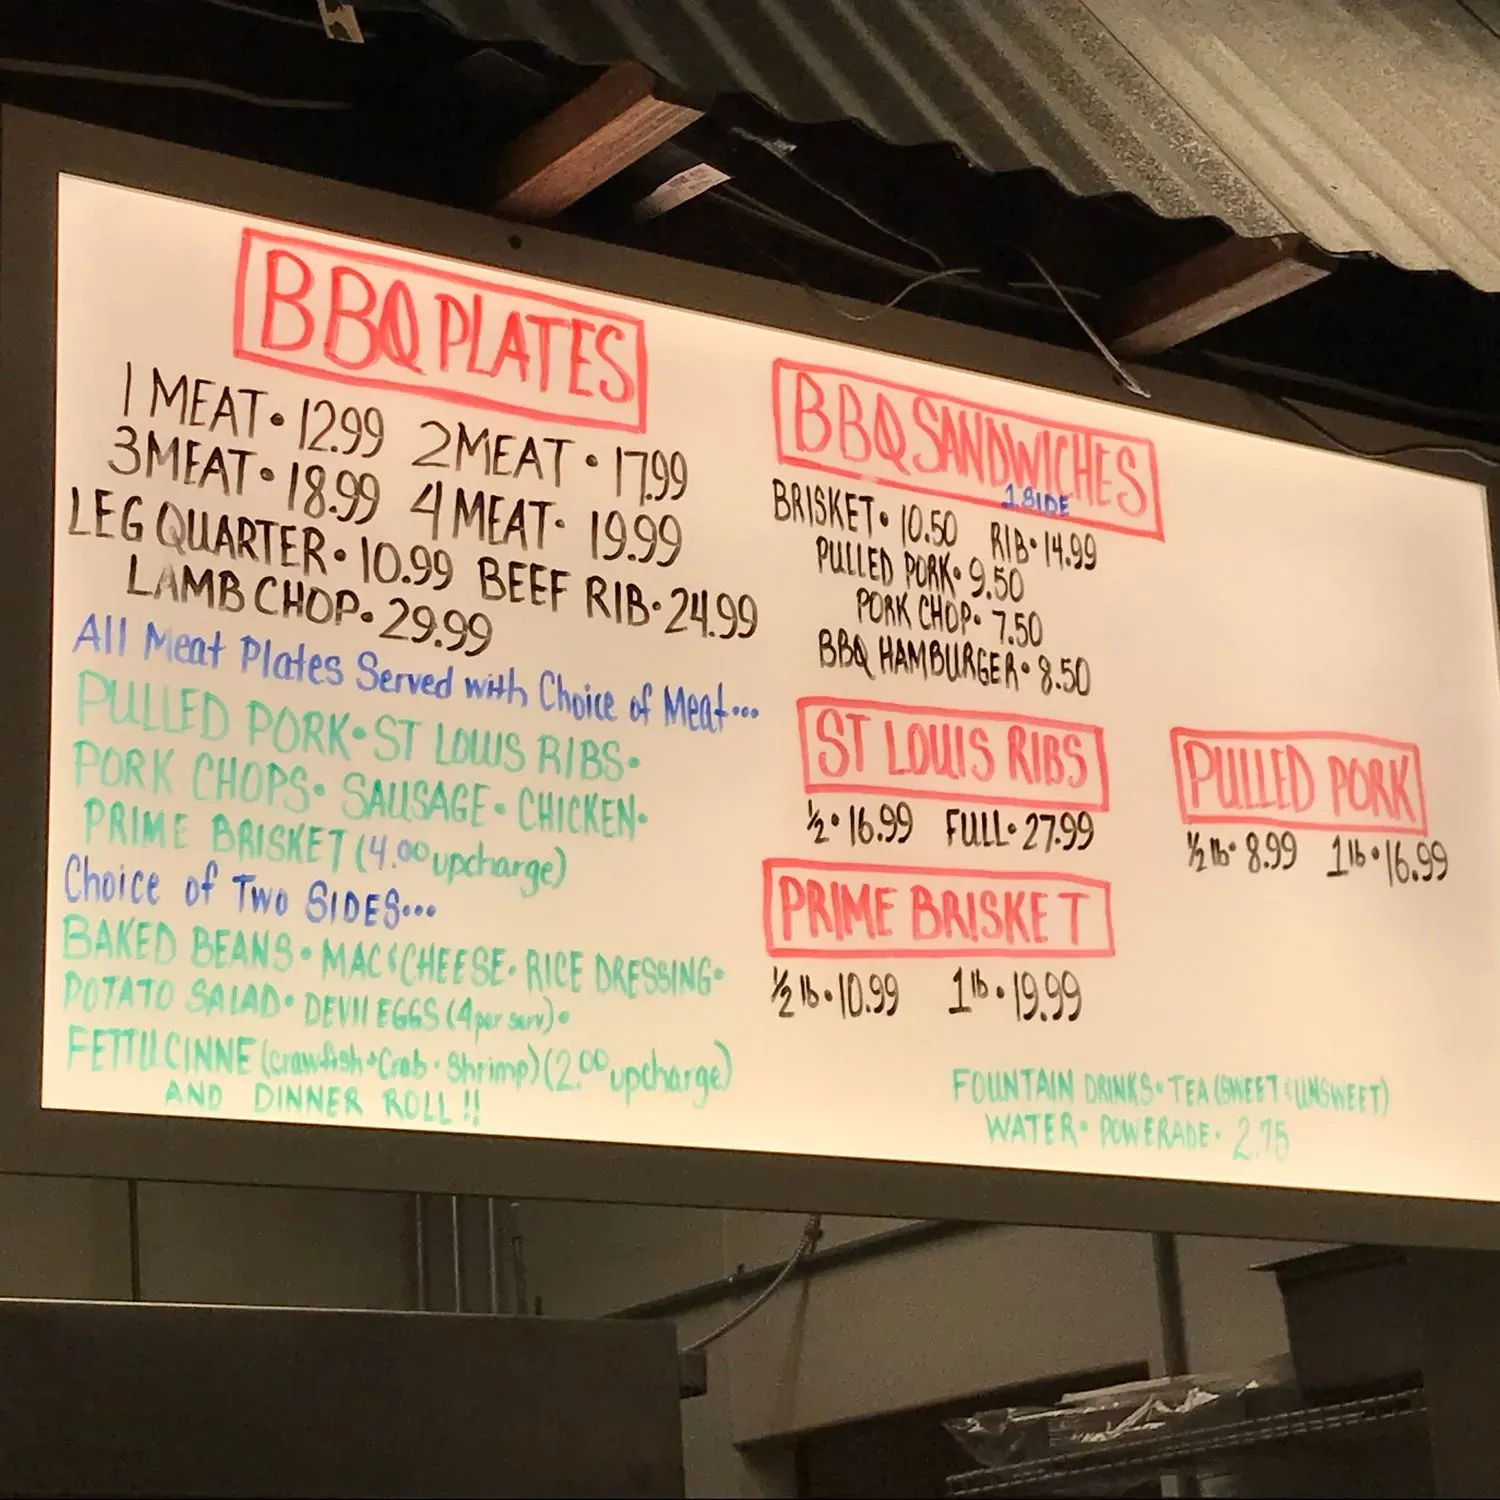 BBQ PLATES
1 MEAT • 12.99 2 MEAT • 17.99
3 MEAT • 18.99 4 MEAT • 19.99
LEG QUARTER • 10.99 BEEF RIB • 24.99
LAMB CHOP • 29.99
All Meat Plates Served with Choice of Meat...
PULLED PORK • ST LOUIS RIBS •
PORK CHOPS • SAUSAGE • CHICKEN •
PRIME BRISKET (4.00 upcharge)
Choice of Two SIDES...
BAKED BEANS • MAC & CHEESE • RICE DRESSING •
POTATO SALAD • DEVIL EGGS (4 per serv) •
FETTUCINNE (crawfish • Crab • Shrimp) (2.00 upcharge)
AND DINNER ROLL !!
BBQ SANDWICHES
1 SIDE
BRISKET • 10.50 RIB • 14.99
PULLED PORK • 9.50
PORK CHOP • 7.50
BBQ HAMBURGER • 8.50
ST LOUIS RIBS
½ • 16.99 FULL • 27.99
PULLED PORK
½ lb • 8.99 1 lb • 16.99
PRIME BRISKET
½ lb • 10.99 1 lb • 19.99
FOUNTAIN DRINKS • TEA (SWEET & UNSWEET)
WATER • POWERADE • 2.75